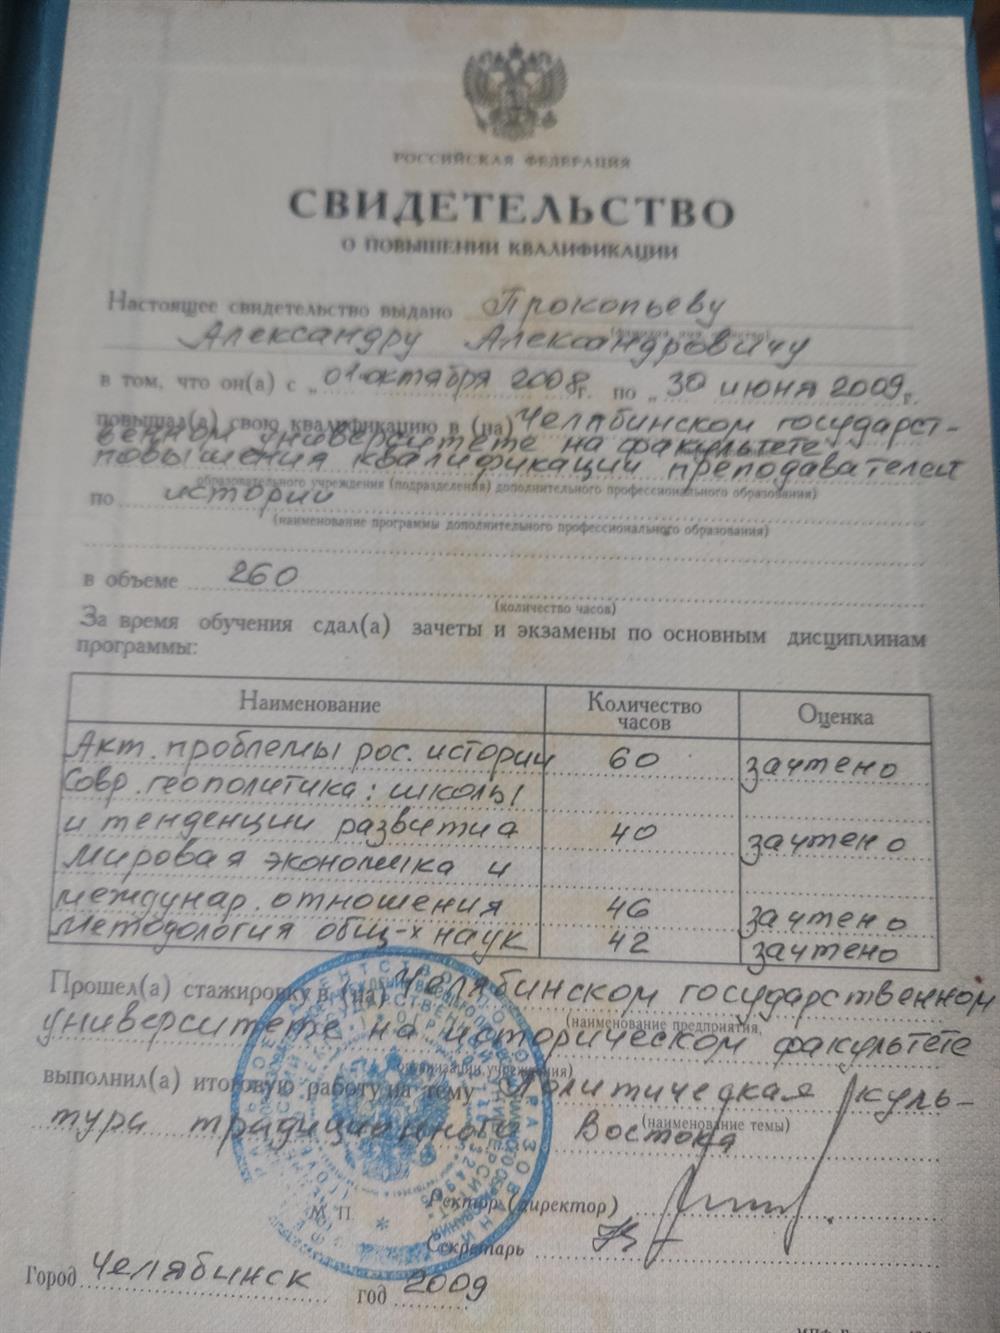 РОССИЙСКАЯ ФЕДЕРАЦИЯ
СВИДЕТЕЛЬСТВО
О ПОВЫШЕНИИ КВАЛИФИКАЦИИ
Настоящее свидетельство выдано Прокопьеву
Александру Александровичу
в том, что он(а) с „01 октября 2008г. по „30 июня 2009г.
повышал(а) свою квалификацию в (на) Челябинском государст-
венном университете на факультете
повышения квалификации преподавателей
образовательного учреждения (подразделения) дополнительного профессионального образования)
по истории
(наименование программы дополнительного профессионального образования)
в объеме 260
(количество часов)
За время обучения сдал(а) зачеты и экзамены по основным дисциплинам
программы:
Наименование Количество часов Оценка
Акт. проблемы рос. истории 60 зачтено
Совр. геополитика: школы
и тенденции развития 40 зачтено
Мировая экономика и
междунар. отношения 46 зачтено
Методология общ-х наук 42 зачтено
Прошел(а) стажировку в (на) Челябинском государственном
(наименование предприятия,
университете на историческом факультете
организации, учреждения)
выполнил(а) итоговую работу на тему Политическая куль-
(наименование темы)
тура традиционного Востока
М. П.
Ректор (директор)
Секретарь
Город Челябинск год 2009